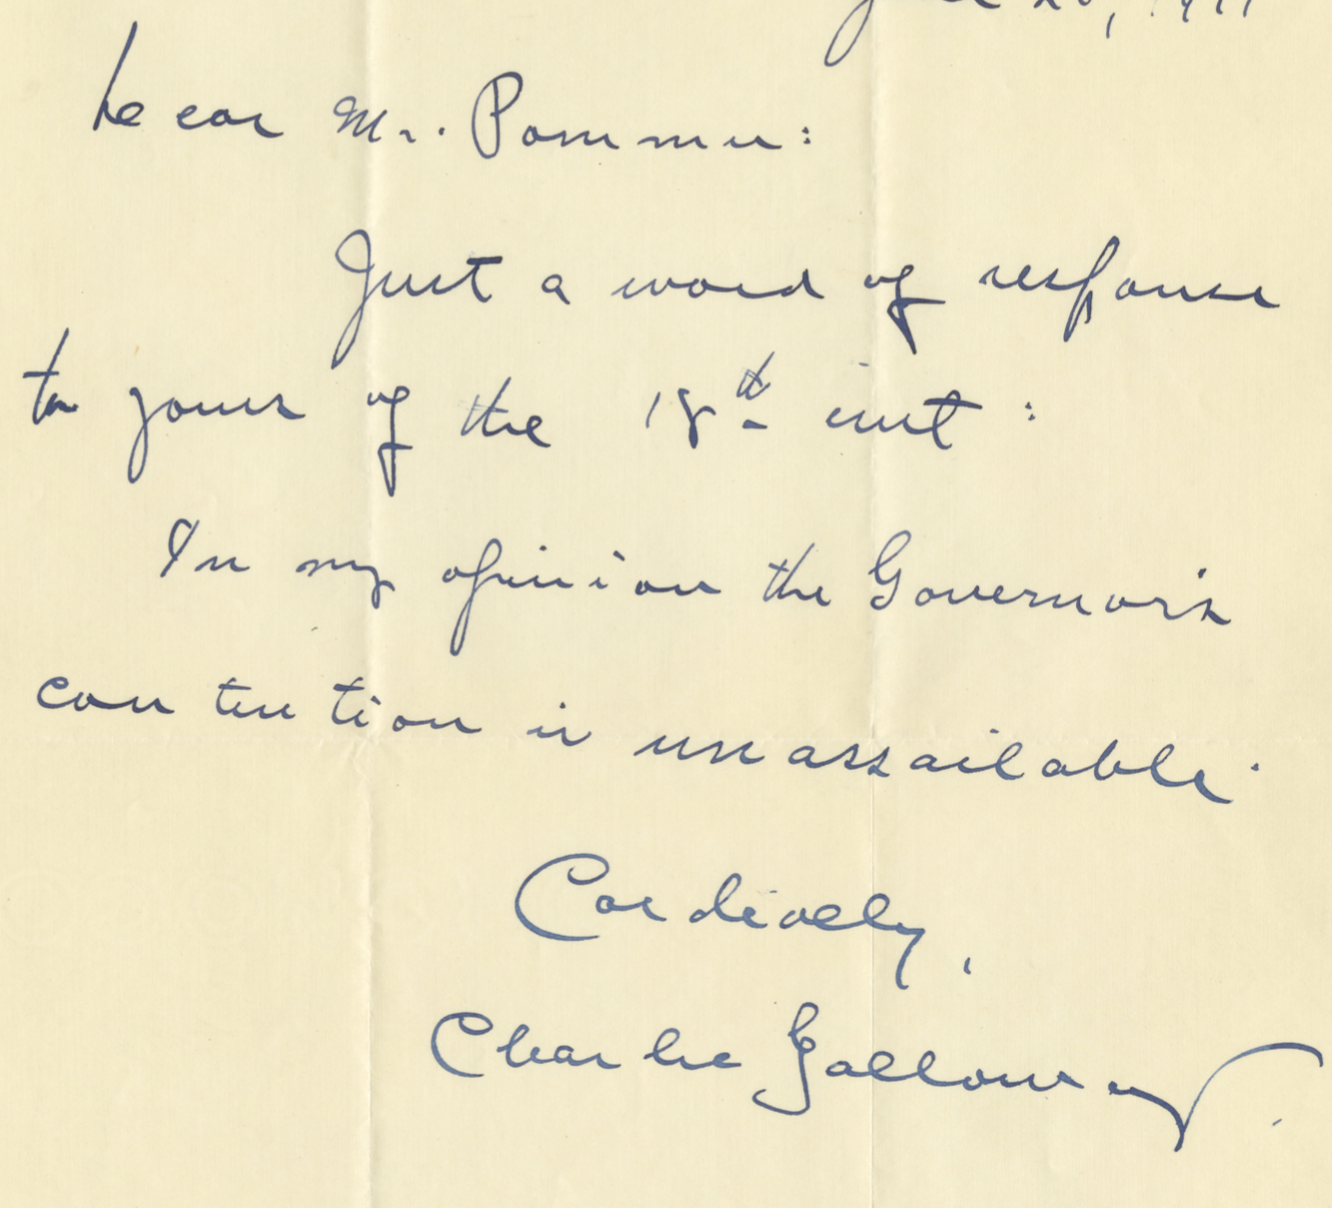 Dear Mr. Pommer:
Just a word of response
to yours of the 18th inst:
In my opinion the Governor's
contention is unassailable.
Cordially,
Charlie Galloway